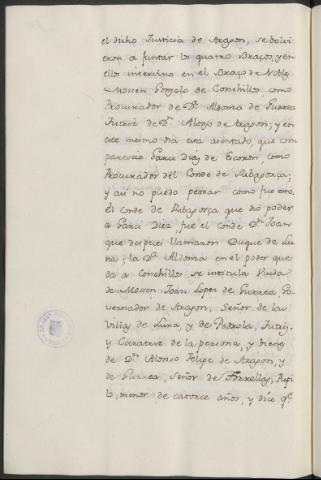 el dicho Justicia de Aragon, se bolvi
eron a juntar los quatro Braços, y en
ellos intervino en el Braço de Nobles
Mossen Gonçalo de Conchillos como
Procurador de Dª Aldonza de Gurrea
Tutriz de Dn Alonso de Aragon; y en
este mismo dia esta asentado, que com
parecio Garci Diez de Escoron, como
Procurador del Conde de Ribagorça;
y asi no puedo pensar como fue esto.
El Conde de Ribagorça que dió poder
a Garci Diez, fue el Conde Dn Joan
que despues llamaron Duque de Lu
na; la Dª Aldonza en el poder que
da a Conchillos se intitula Viuda
de Mossen Joan Lopez de Gurrea Go
vernador de Aragon, Señor de las
Villas de Luna, y de Pedrola, Tutriz,
y Curatriz de la persona, y bienes
de Dn Alonso Felipe de Aragon, y
de Gurrea, Señor de Torrellas, Pupi
lo, menor de catorce años, y dice qe